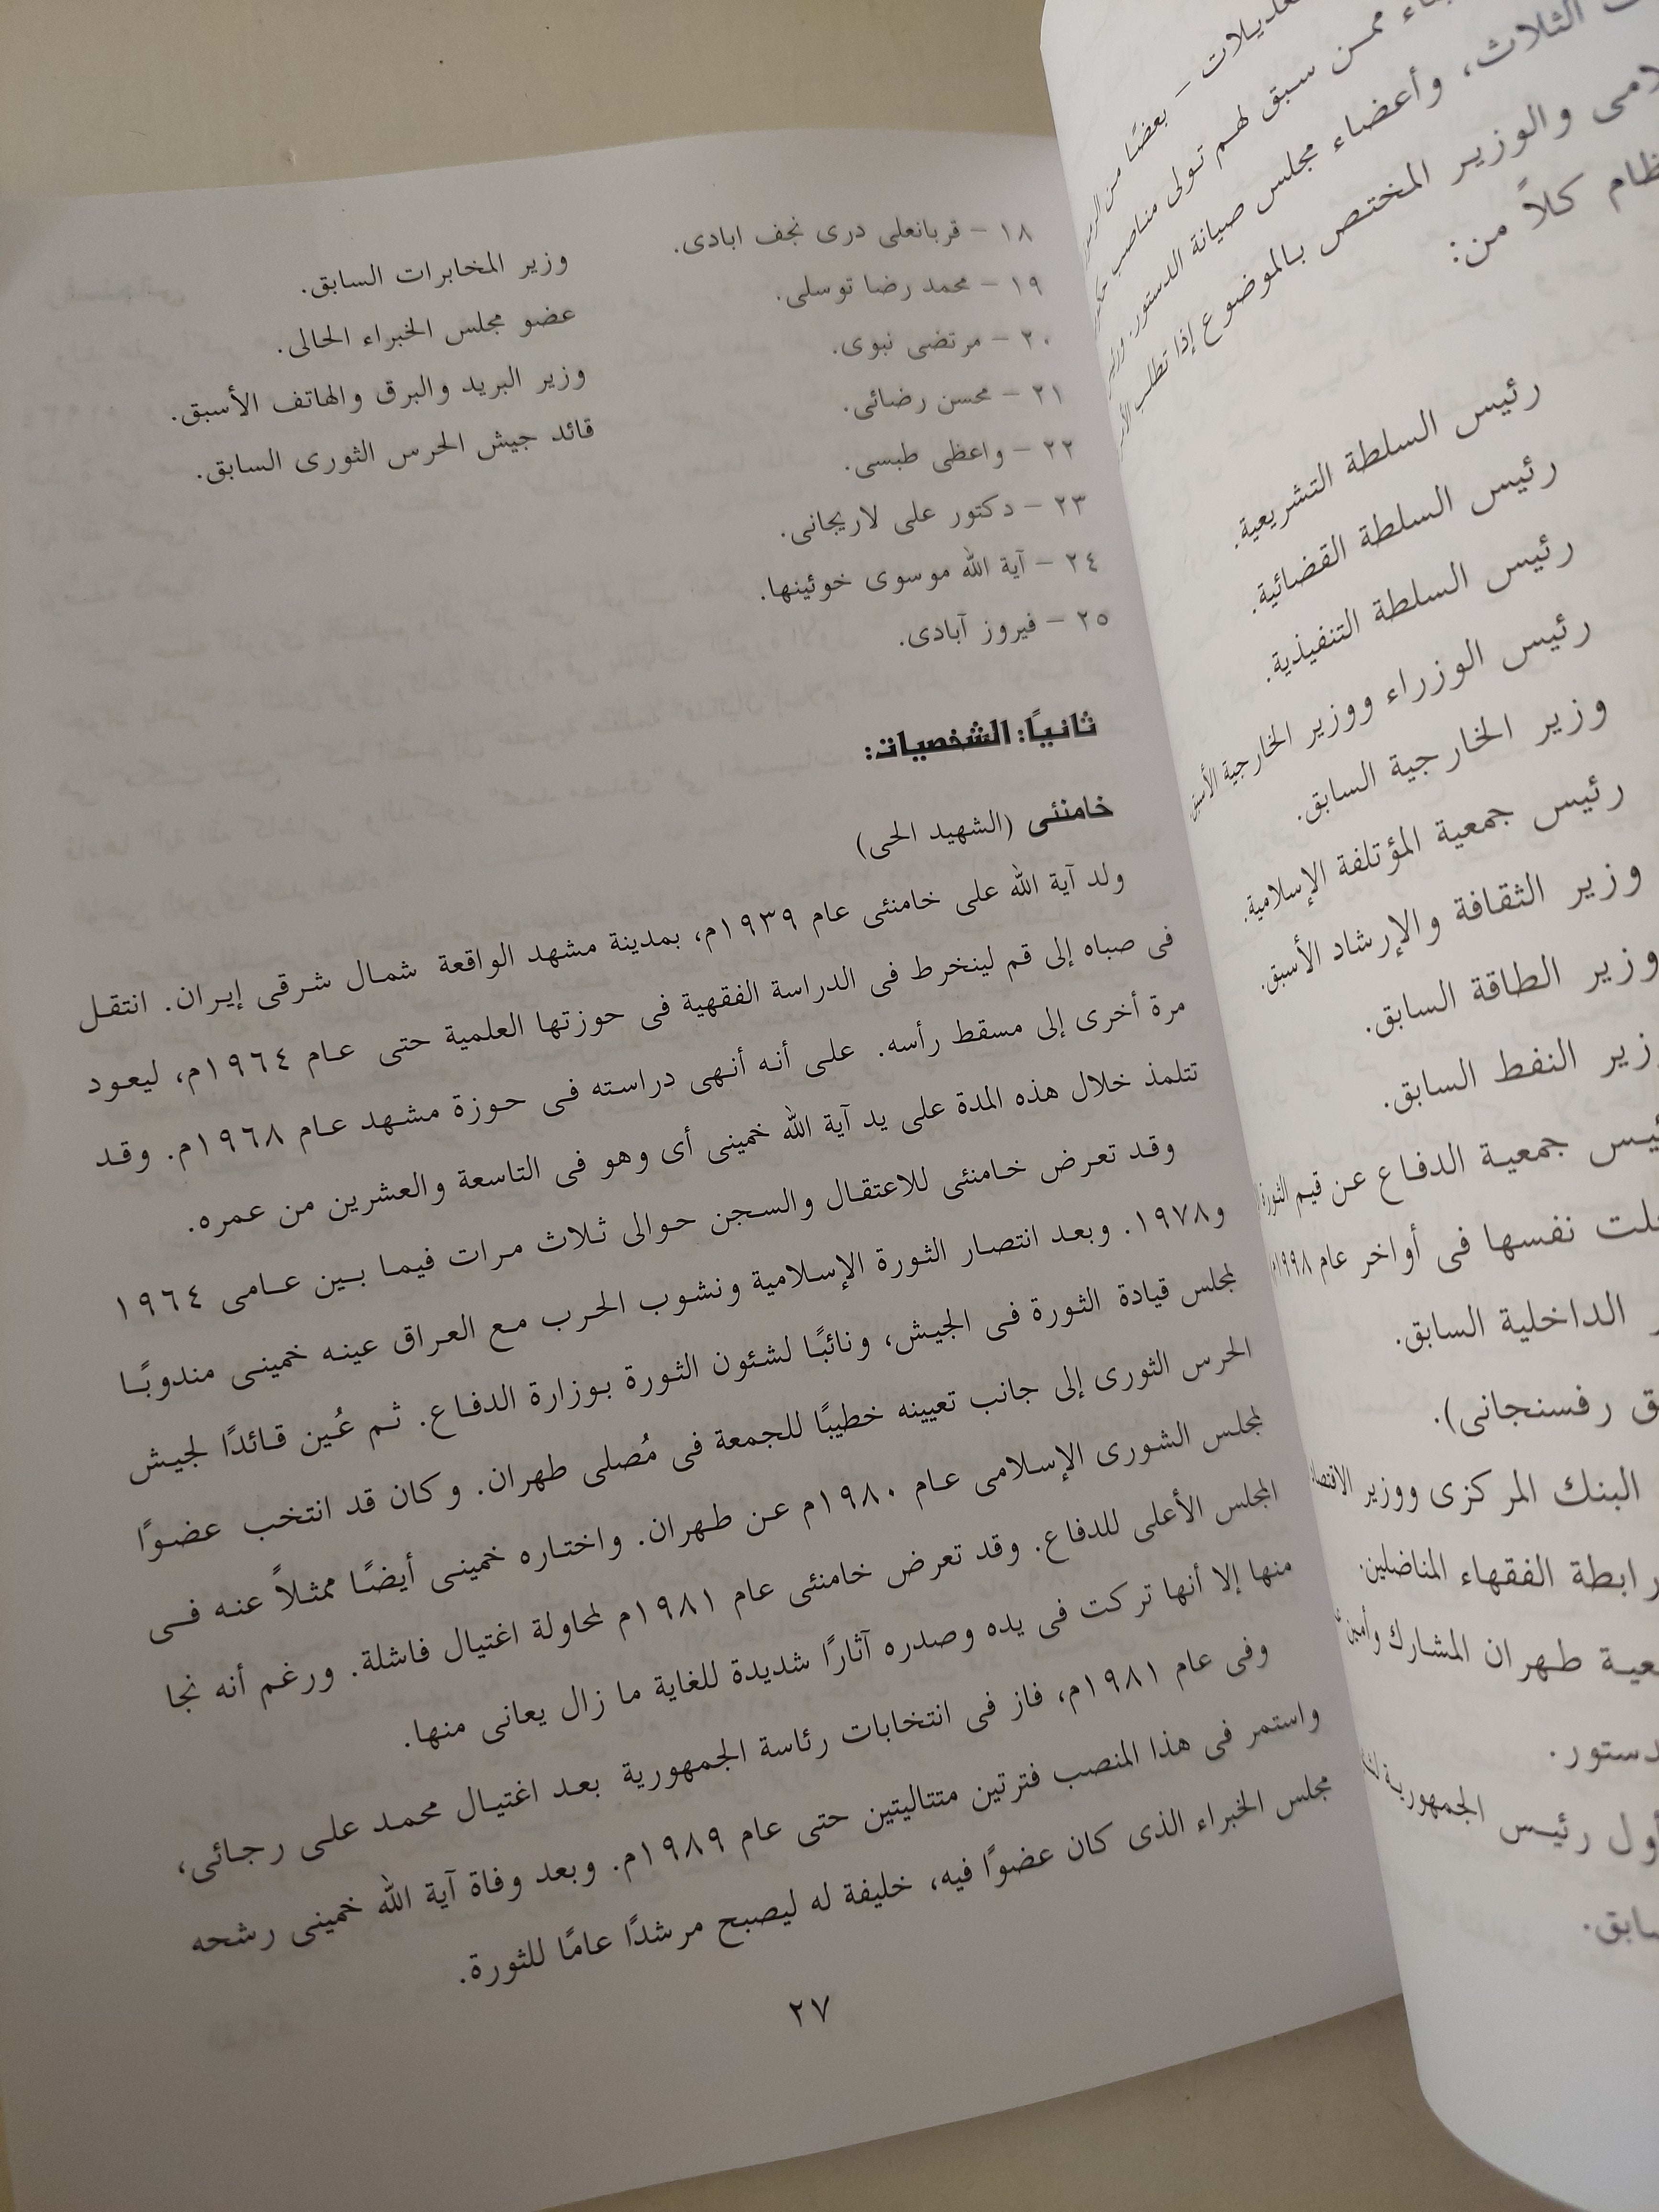 تعديلات - بعضًا من
ممن سبق لهم تولى مناصب
الثلاث، وأعضاء مجلس صيانة الدستور.
والوزير المختص بالموضوع إذا تطلب
كلاً من:
رئيس السلطة التشريعية.
رئيس السلطة القضائية.
رئيس السلطة التنفيذية.
رئيس الوزراء ووزير الخارجية الأسبق
وزير الخارجية السابق.
رئيس جمعية المؤتلفة الإسلامية.
وزير الثقافة والإرشاد الأسبق.
وزير الطاقة السابق.
النفط السابق.
جمعية الدفاع عن قيم الثورة
نفسها فى أواخر عام ١٩٩٨
الداخلية السابق.
رفسنجانى).
البنك المركزى ووزير
رابطة الفقهاء المناضلين.
طهران المشارك وأمين
رئيس الجمهورية
١٨ - قربانعلى درى نجف ابادى. وزير المخابرات السابق.
١٩ - محمد رضا توسلى. عضو مجلس الخبراء الحالى.
٢٠ - مرتضى نبوى. وزير البريد والبرق والهاتف الأسبق.
٢١ - محسن رضائى. قائد جيش الحرس الثورى السابق.
٢٢ - واعظى طبسى.
٢٣ - دكتور على لاريجانى.
٢٤ - آية الله موسوى خوئينها.
٢٥ - فيروز آبادى.
ثانيًا: الشخصيات:
خامنئى (الشهيد الحى)
ولد آية الله على خامنئى عام ١٩٣٩م، بمدينة مشهد الواقعة شمال شرقى إيران. انتقل
فى صباه إلى قم لينخرط فى الدراسة الفقهية فى حوزتها العلمية حتى عام ١٩٦٤م، ليعود
مرة أخرى إلى مسقط رأسه. على أنه أنهى دراسته فى حوزة مشهد عام ١٩٦٨م. وقد
تتلمذ خلال هذه المدة على يد آية الله خمينى أى وهو فى التاسعة والعشرين من عمره.
وقد تعرض خامنئى للاعتقال والسجن حوالى ثلاث مرات فيما بين عامى ١٩٦٤
و١٩٧٨. وبعد انتصار الثورة الإسلامية ونشوب الحرب مع العراق عينه خمينى مندوبًا
لمجلس قيادة الثورة فى الجيش، ونائبًا لشئون الثورة بوزارة الدفاع. ثم عُين قائدًا لجيش
الحرس الثورى إلى جانب تعيينه خطيبًا للجمعة فى مُصلى طهران. وكان قد انتخب عضوًا
لمجلس الشورى الإسلامى عام ١٩٨٠م عن طهران. واختاره خمينى أيضًا ممثلاً عنه فى
المجلس الأعلى للدفاع. وقد تعرض خامنئى عام ١٩٨١م لمحاولة اغتيال فاشلة. ورغم أنه نجا
منها إلا أنها تركت فى يده وصدره آثارًا شديدة للغاية ما زال يعانى منها.
وفى عام ١٩٨١م، فاز فى انتخابات رئاسة الجمهورية بعد اغتيال محمد على رجائى،
واستمر فى هذا المنصب فترتين متتاليتين حتى عام ١٩٨٩م. وبعد وفاة آية الله خمينى رشحه
مجلس الخبراء الذى كان عضوًا فيه، خليفة له ليصبح مرشدًا عامًا للثورة.
٢٧